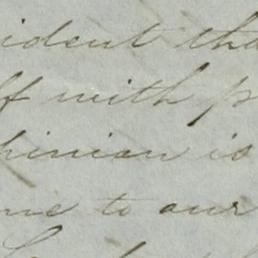 ident tha
ff with p
hinion is
me to our